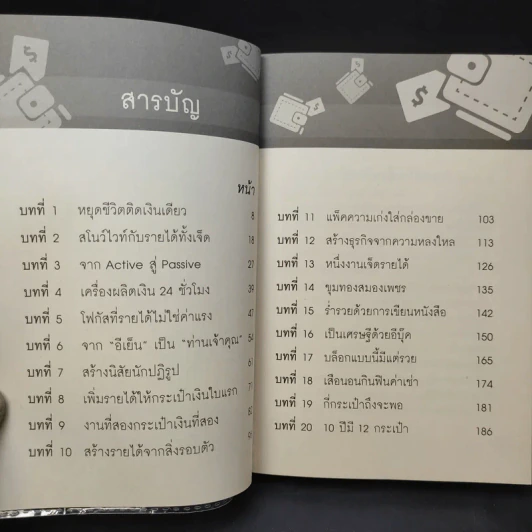 สารบัญ
หน้า
บทที่ 1 หยุดชีวิตติดเงินเดียว 8
บทที่ 2 สโนว์ไวท์กับรายได้ทั้งเจ็ด 18
บทที่ 3 จาก Active สู่ Passive 27
บทที่ 4 เครื่องผลิตเงิน 24 ชั่วโมง 39
บทที่ 5 โฟกัสที่รายได้ไม่ใช่ค่าแรง 47
บทที่ 6 จาก "อีเย็น" เป็น "ท่านเจ้าคุณ" 54
บทที่ 7 สร้างนิสัยนักปฏิรูป 61
บทที่ 8 เพิ่มรายได้ให้กระเป๋าเงินใบแรก 71
บทที่ 9 งานที่สองกระเป๋าเงินที่สอง
บทที่ 10 สร้างรายได้จากสิ่งรอบตัว
บทที่ 11 แพ็คความเก่งใส่กล่องขาย 103
บทที่ 12 สร้างธุรกิจจากความหลงใหล 113
บทที่ 13 หนึ่งงานเจ็ดรายได้ 126
บทที่ 14 ขุมทองสมองเพชร 135
บทที่ 15 ร่ำรวยด้วยการเขียนหนังสือ 142
บทที่ 16 เป็นเศรษฐีด้วยอีบุ๊ค 150
บทที่ 17 บล็อกแบบนี้มีแต่รวย 165
บทที่ 18 เสือนอนกินฟินค่าเช่า 174
บทที่ 19 กี่กระเป๋าถึงจะพอ 181
บทที่ 20 10 ปีมี 12 กระเป๋า 186